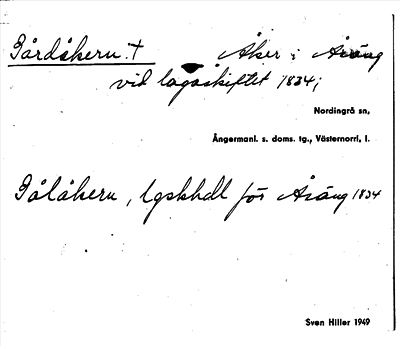 Gårdåkern. † Åker i Åräng
vid lagaskiftet 1834;
Nordingrå sn,
Ångermanl. s. doms. tg., Västernorrl, l.
Gålåkern, lgskhdl för Åräng 1834
Sven Hiller 1949